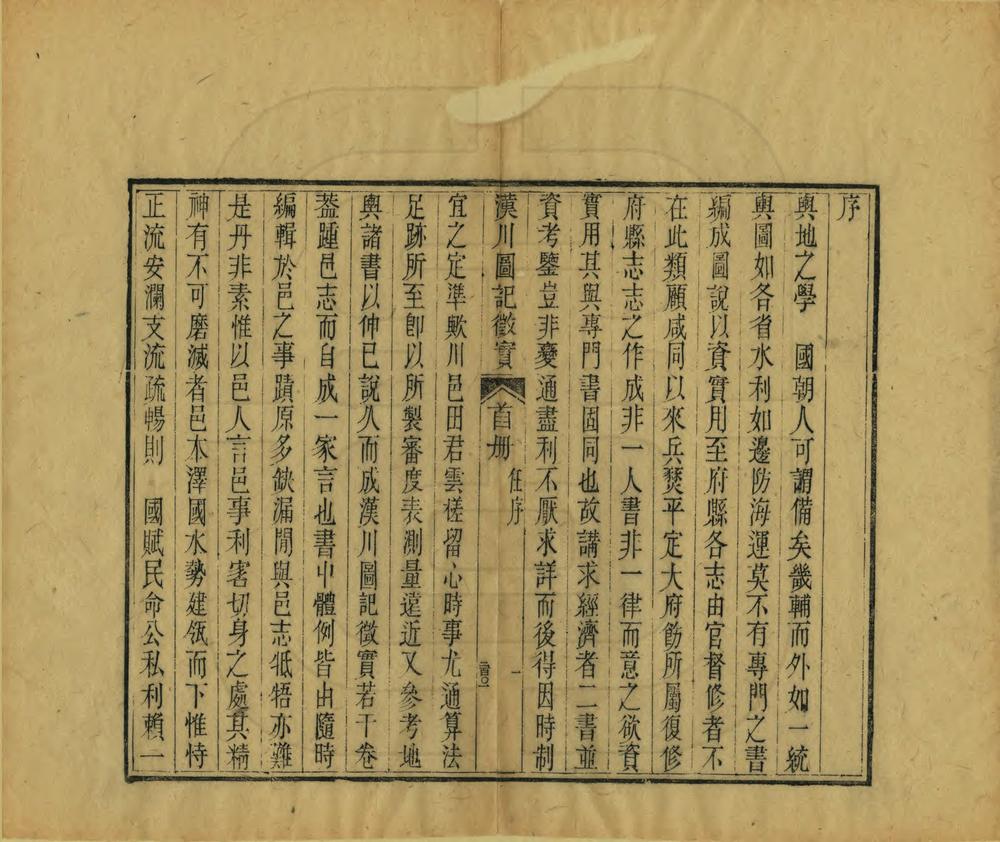 序
輿地之學　國朝人可謂備矣畿輔而外如一統
輿圖如各省水利如邊防海運莫不有專門之書
編成圖說以資實用至府縣各志由官督修者不
在此類願咸同以來兵燹平定大府飭所屬復修
府縣志志之作成非一人書非一律而意之欲資
實用其與專門書固同也故講求經濟者二書並
資考鑒豈非變通盡利不厭求詳而後得因時制
漢川圖記徵實　首册　任序　一
宜之定準歟川邑田君雲槎留心時事尤通算法
足跡所至卽以所製審度表測量遠近又參考地
輿諸書以伸已說久而成漢川圖記徵實若干卷
葢踵邑志而自成一家言也書中體例皆由隨時
編輯於邑之事蹟原多缺漏閒與邑志牴牾亦難
是丹非素惟以邑人言邑事利害切身之處其精
神有不可磨滅者邑本澤國水勢建瓴而下惟恃
正流安瀾支流疏暢則　國賦民命公私利賴一